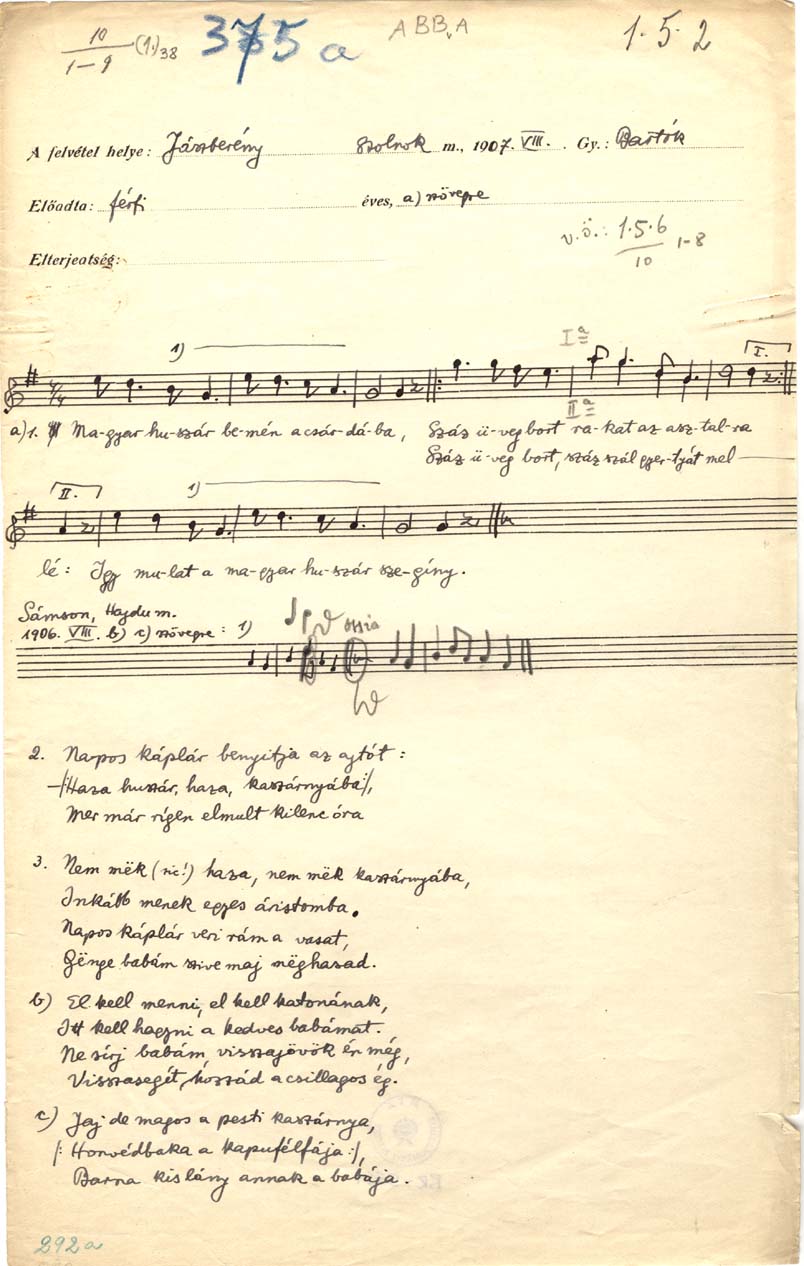 10 / 1–9 (1.) 38 375 a A B Bv A 1.5.2
A felvétel helye: Jászberény Szolnok m., 1907. VIII. Gy.: Bartók
Előadta: férfi éves, a) szövegre
v.ö.: 1.5.6 / 10 1–8
Elterjeatség:
1) I a I.
a) 1. Ma-gyar hu-szár be-mén a csár-dá-ba, Száz ü-veg bort ra-kat az asz-tal-ra
II a
Száz ü-veg bort, száz szál gyer-tyát mel
II. 1)
lé: Így mu-lat a ma-gyar hu-szár sze-gíny.
Sámson, Hajdu m.
1906. VIII. b) c) szövegre: 1) ossia
2. Napos káplár benyitja az ajtót:
/:Haza huszár, haza, kaszárnyába:/,
Mer már rígen elmult kilenc óra
3. Nem mëk (sic!) haza, nem mëk kaszárnyába,
Inkább menek egyes áristomba.
Napos káplár veri rám a vasat,
Gënge babám szive maj mëghasad.
b) El kell menni, el kell katonának,
Itt kell hagyni a kedves babámat.
Ne sírj babám, visszajövök én még,
Visszasegít hozzád a csillagos ég.
c) Jaj de magos a pesti kaszárnya,
/: Honvédbaka a kapufélfája :/,
Barna kislány annak a babája.
292a